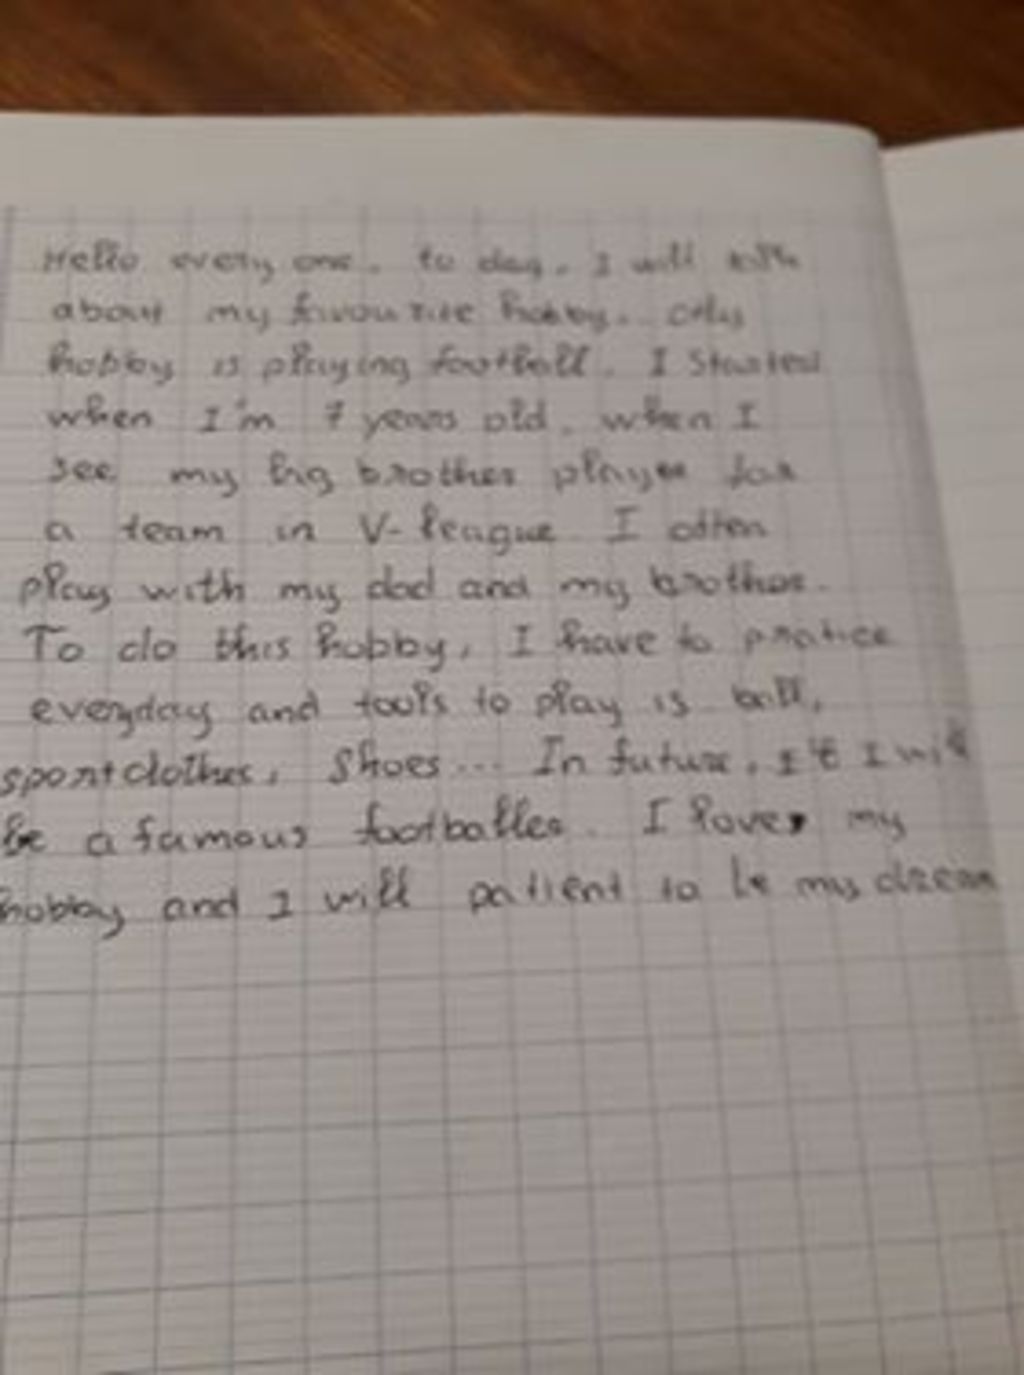 Hello every one. to day. I will talk
about my favourite hobby. My
hobby is playing football. I started
when I'm 7 years old. when I
see my big brother player for
a team in V-league I often
play with my dad and my brother.
To do this hobby, I have to pratice
everyday and tools to play is ball,
sport clothes, Shoes... In future, I will
be a famous footballer. I love my
hobby and I will patient to be my dream